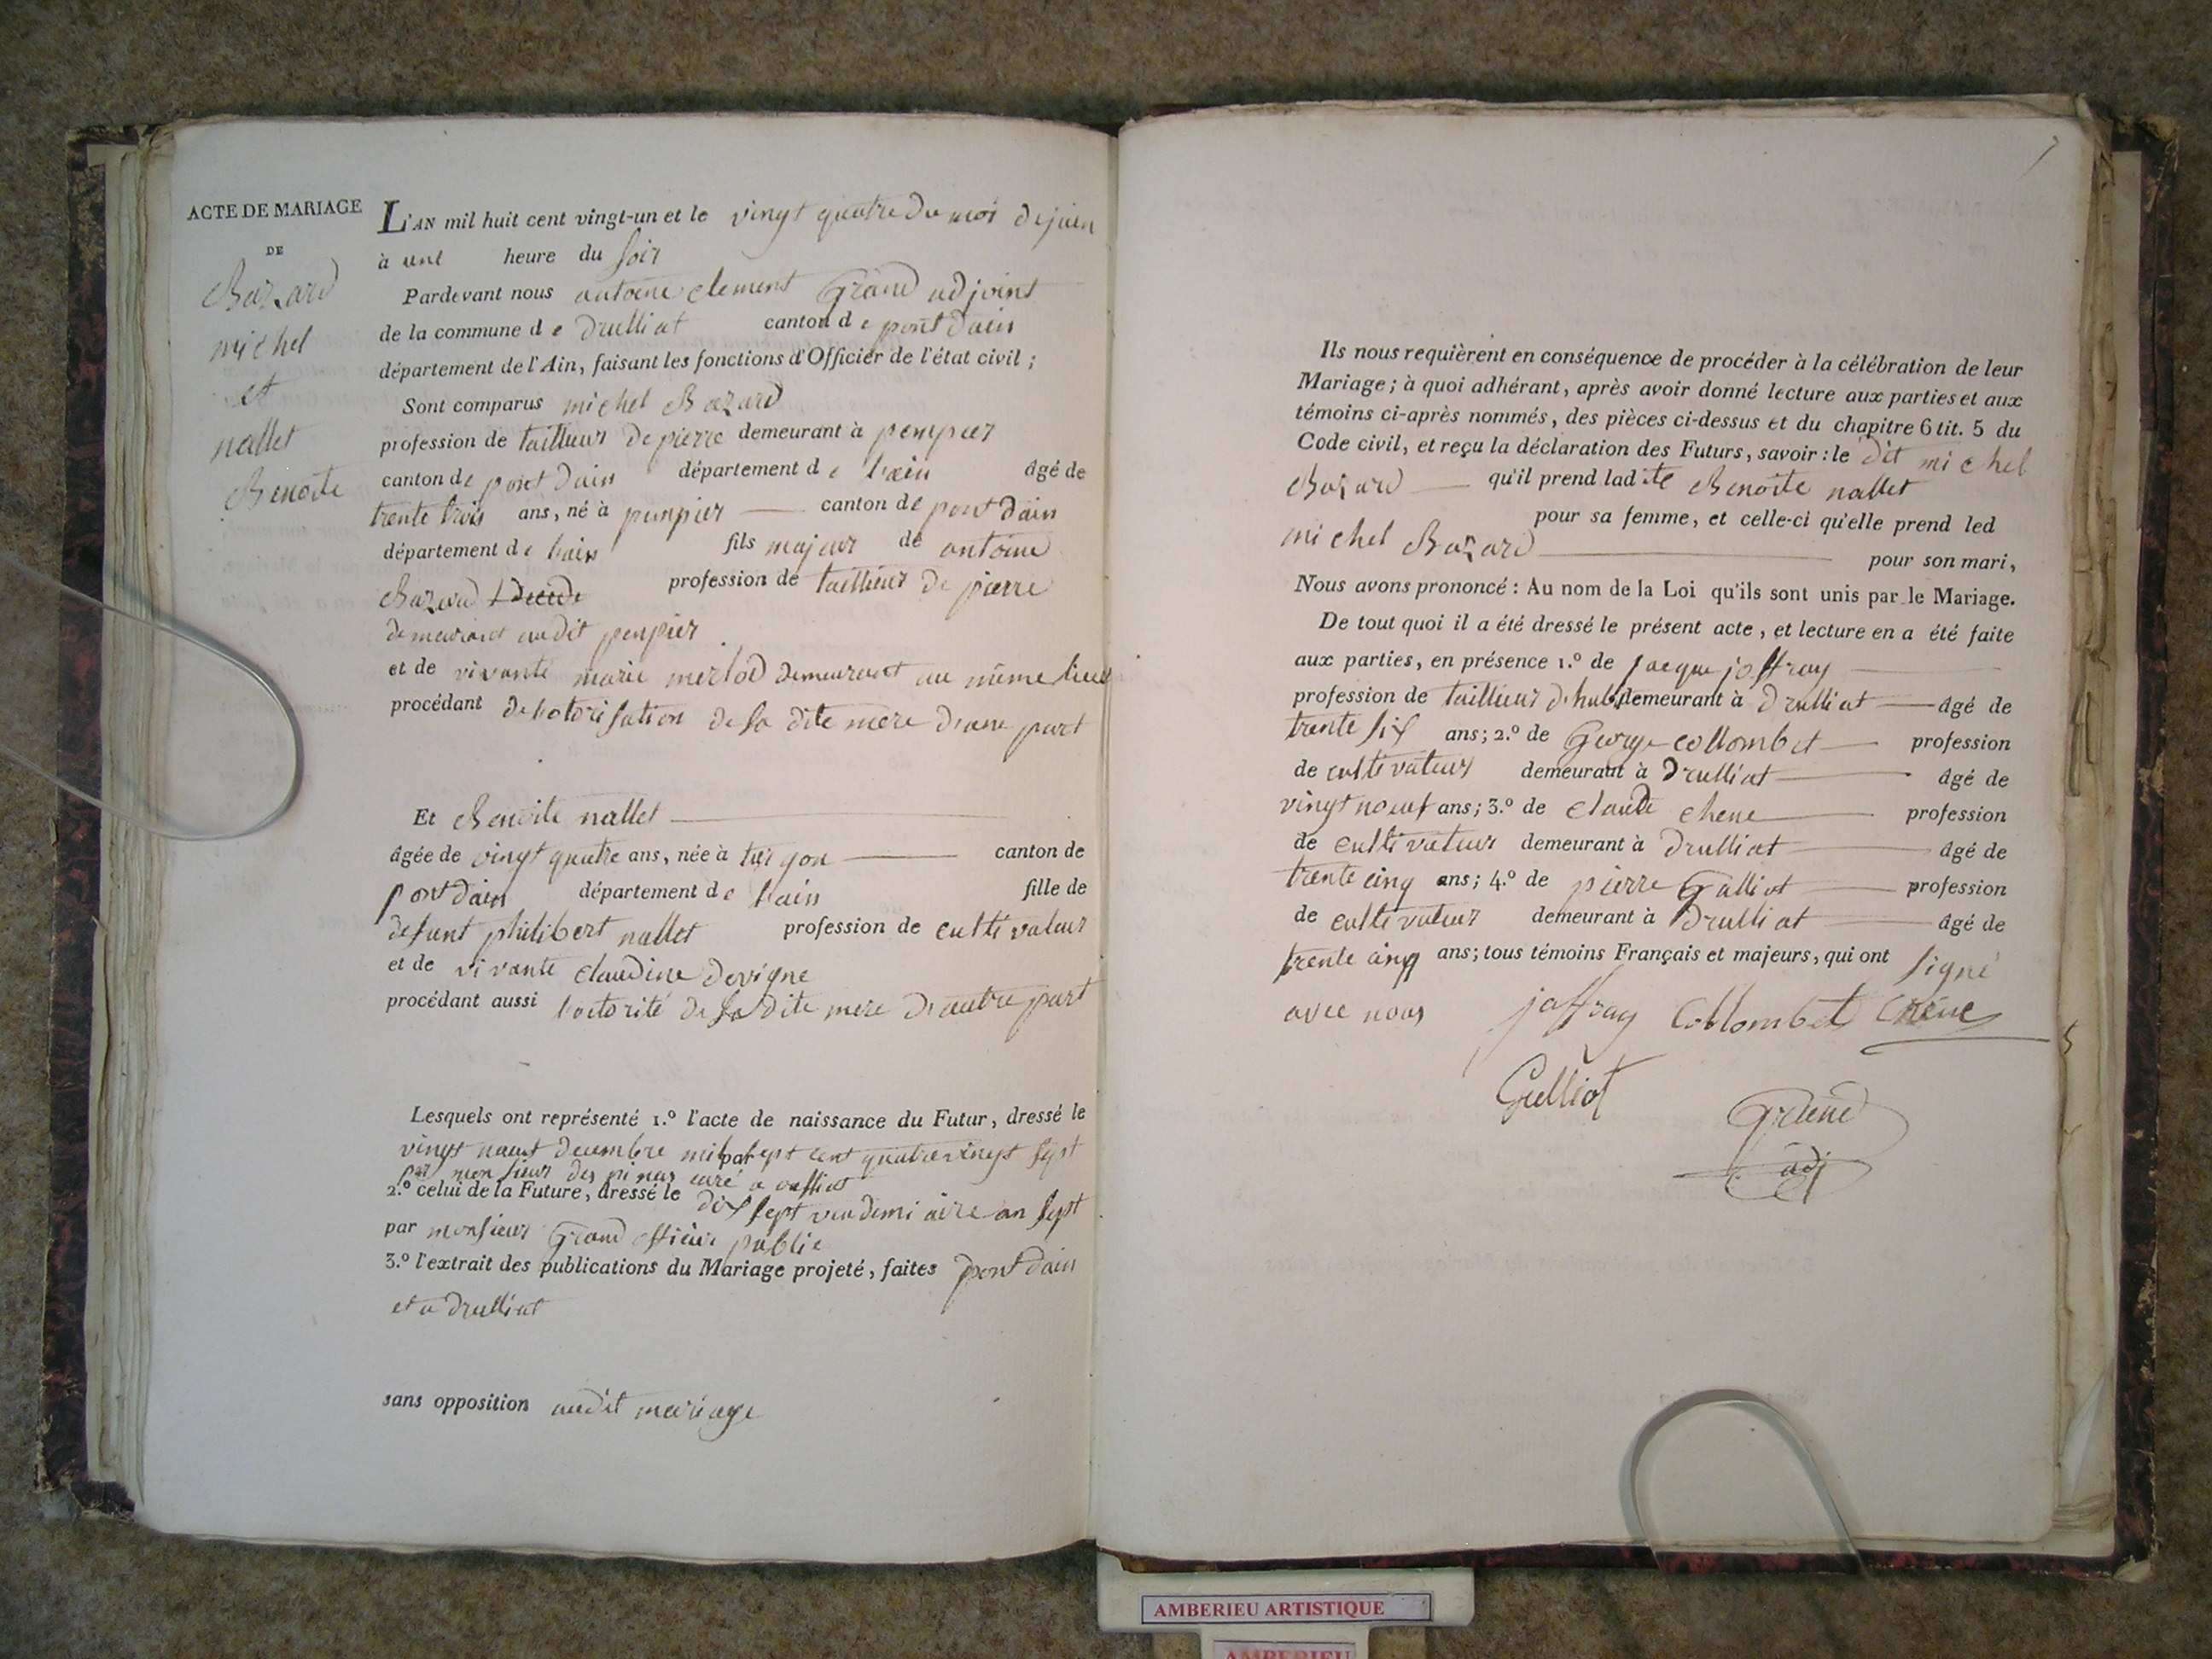 ACTE DE MARIAGE
DE
Bozard
michel
et
nallet
Benoite
L'AN mil huit cent vingt-un et le vingt quatre du mois de juin
à une heure du soir
Pardevant nous antoine clement Grand adjoint
de la commune de Drulliat canton de pont dain
département de l'Ain, faisant les fonctions d'Officier de l'état civil ;
Sont comparus michel Bozard
profession de taillieur de pierre demeurant à penpier
canton de pont dain département de lain âgé de
trente trois ans, né à punpier canton de pont dain
département de lain fils majeur de antoine
Bozard profession de taillieur de pierre
demeurant audit penpier
et de vivante marie merlod demeurant au même lieu
procédant de lotorisation de sa dite mere d'une part
Et Benoite nallet
âgée de vingt quatre ans, née à turgon canton de
pont dain département de lain fille de
defunt philibert nallet profession de cultivateur
et de vivante claudine devigne
procédant aussi lotorité de sa dite mere d'autre part
Lesquels ont représenté 1.º l'acte de naissance du Futur, dressé le
vingt neuf decembre mil sept cent quatrevingt sept
par monsieur des pinas curé a
2.º celui de la Future, dressé le dix sept vendemiaire an sept
par monsieur Grand officier public
3.º l'extrait des publications du Mariage projeté, faites pont dain
et a Drulliat
sans opposition audit mariage
Ils nous requièrent en conséquence de procéder à la célébration de leur
Mariage ; à quoi adhérant, après avoir donné lecture aux parties et aux
témoins ci-après nommés, des pièces ci-dessus et du chapitre 6 tit. 5 du
Code civil, et reçu la déclaration des Futurs, savoir : le dit michel
Bozard qu'il prend ladite Benoite nallet
pour sa femme, et celle-ci qu'elle prend led
michel Bozard pour son mari,
Nous avons prononcé : Au nom de la Loi qu'ils sont unis par le Mariage.
De tout quoi il a été dressé le présent acte, et lecture en a été faite
aux parties, en présence 1.º de jacque joffray
profession de taillieur d'hab demeurant à Drulliat âgé de
trente six ans ; 2.º de George collombet profession
de cultivateur demeurant à Drulliat âgé de
vingt noeuf ans ; 3.º de claude chene profession
de cultivateur demeurant à Drulliat âgé de
trente cinq ans ; 4.º de pierre Gulliot profession
de cultivateur demeurant à Drulliat âgé de
trente cinq ans ; tous témoins Français et majeurs, qui ont signé
avec nous joffray Collombet Chêne
Gulliot
Grand
adj
AMBERIEU ARTISTIQUE
AMBERIEU